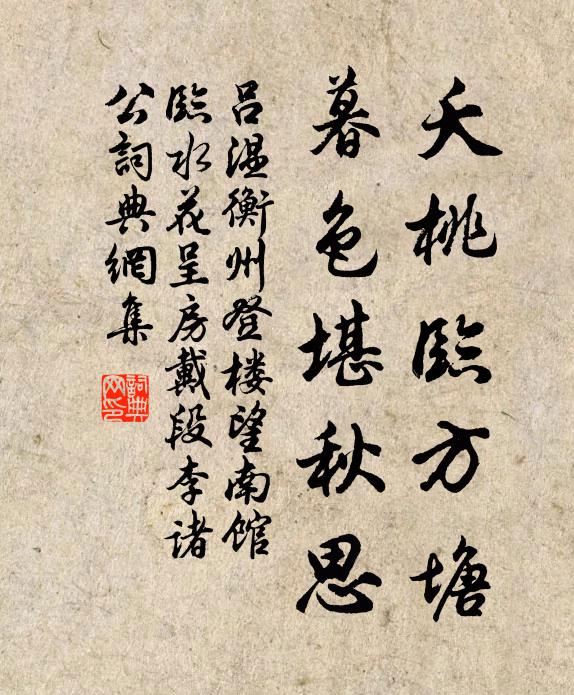 夭桃臨方塘
暮色堪秋思
吕溫衡州登楼望南馆
臨水花呈房戴段李诸
公詞典網集
詞典
网印